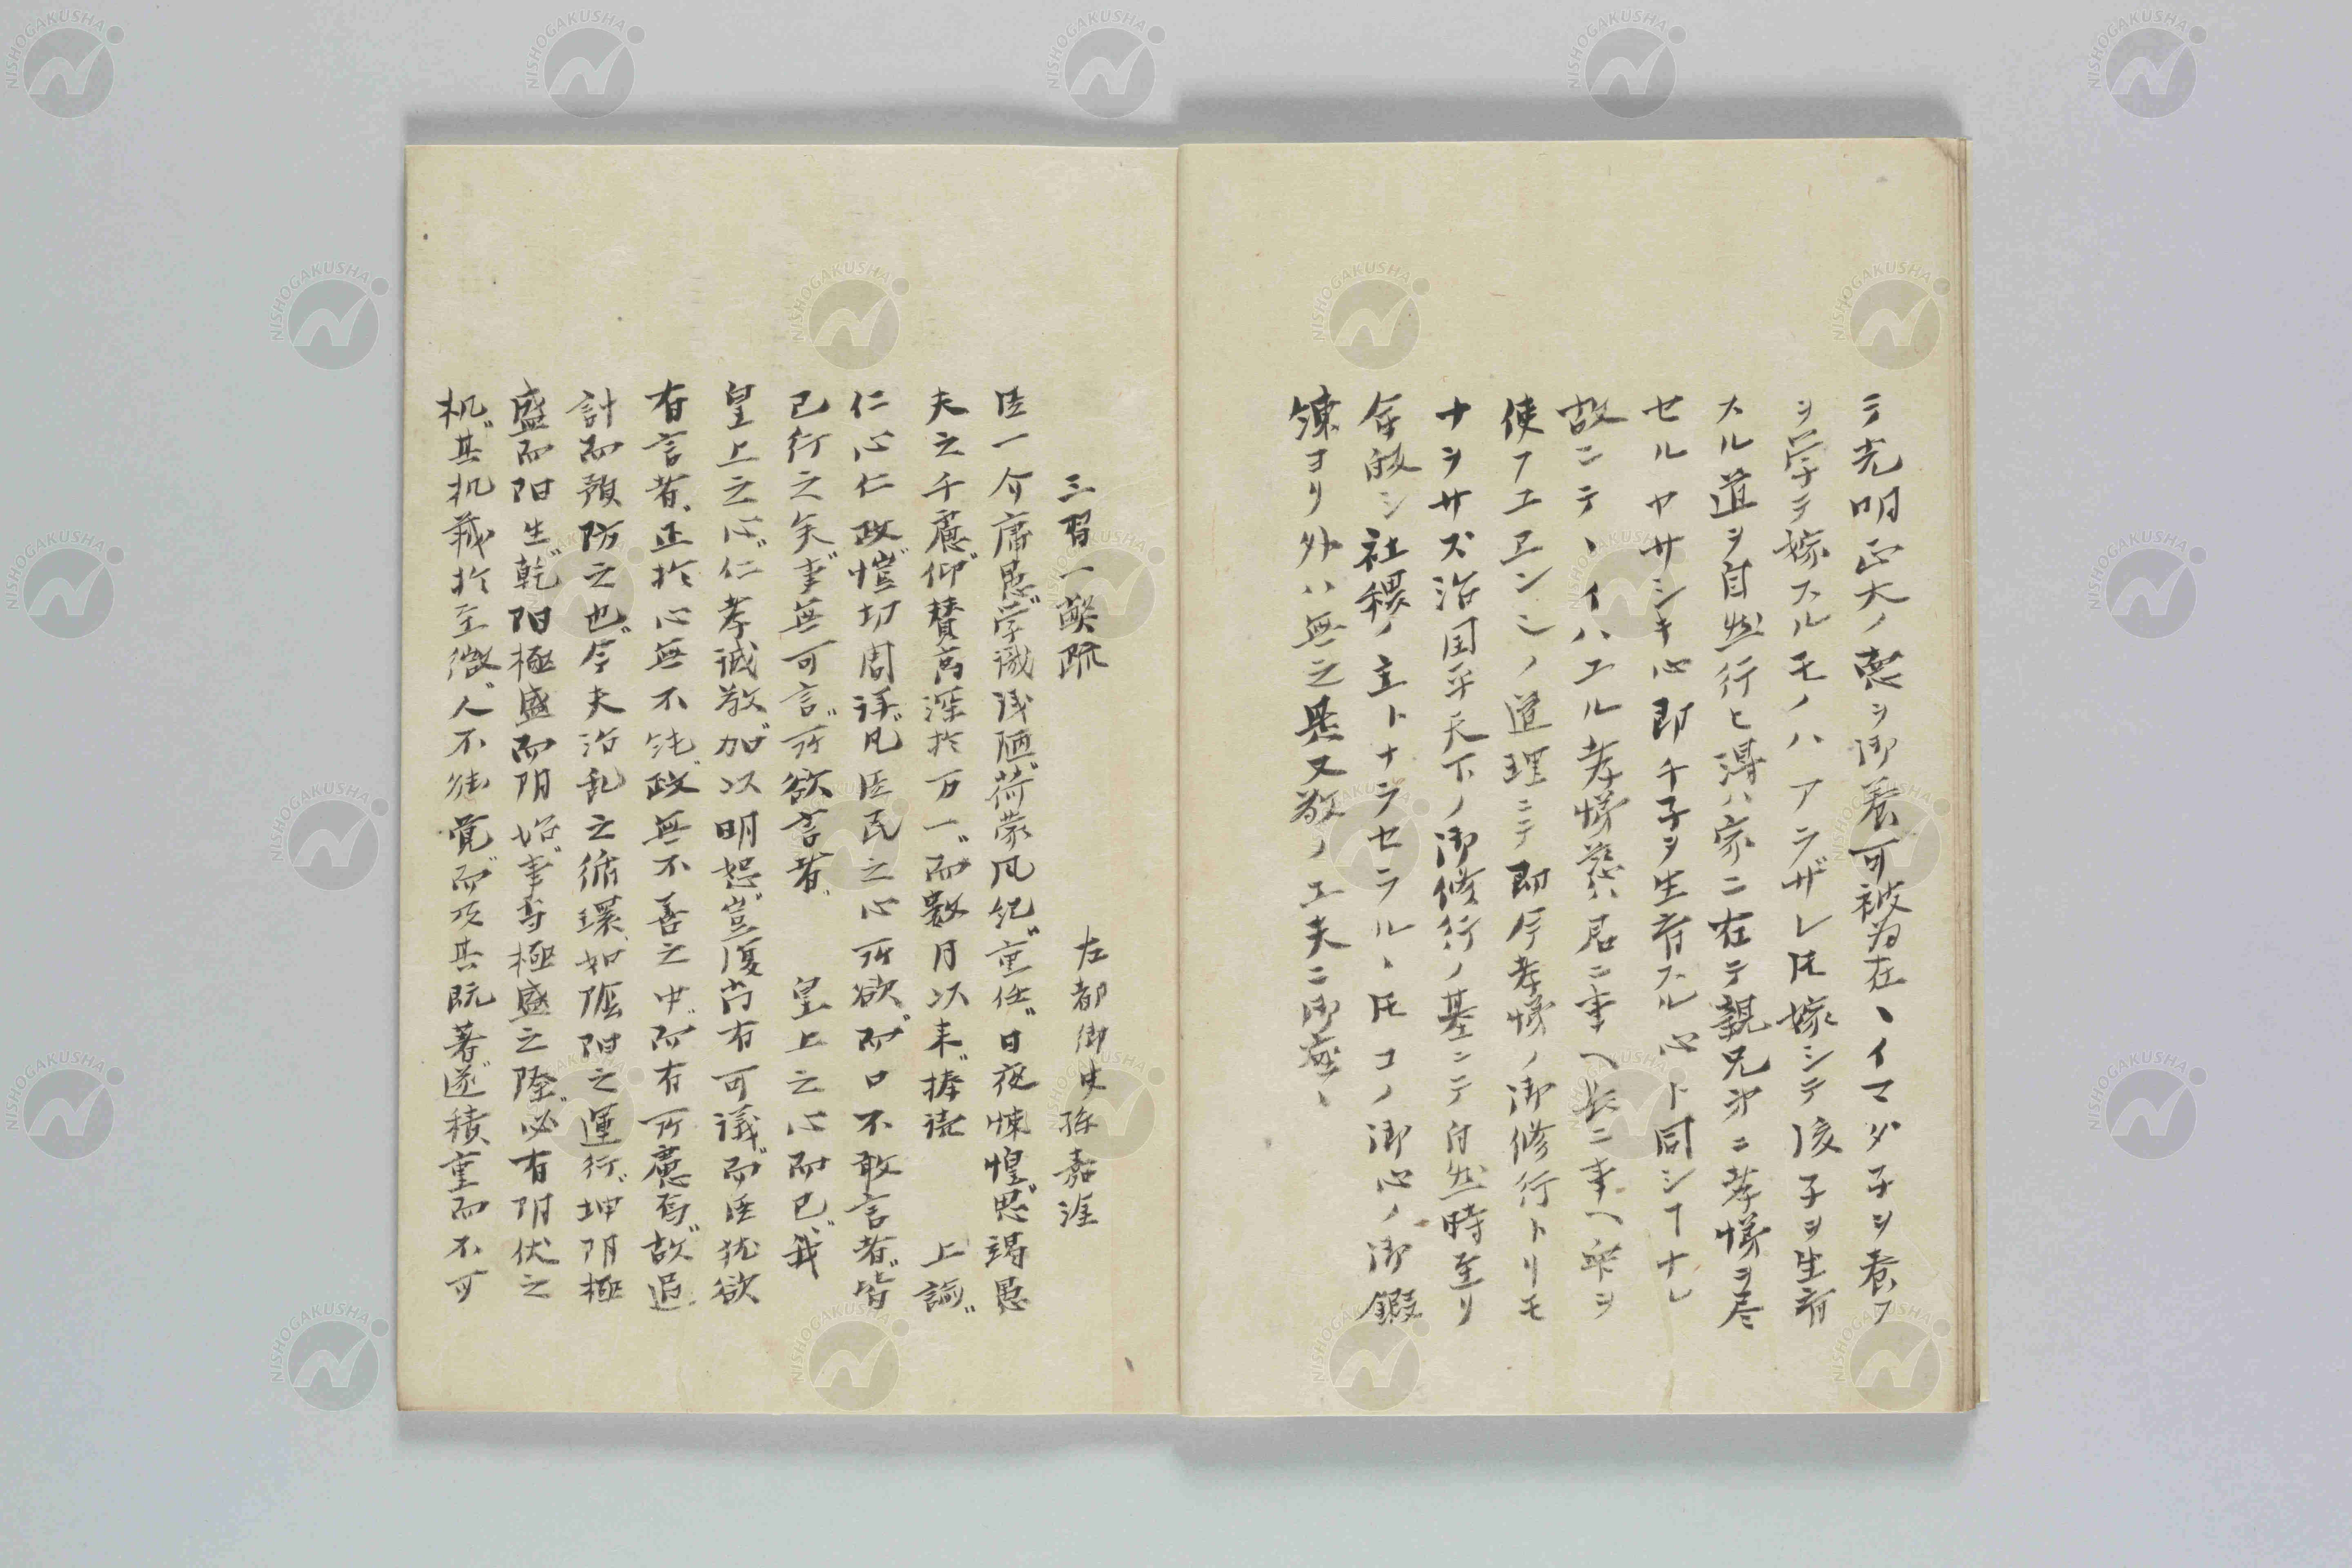 テ光明正大ノ恵ヲ御養可被為在、イマダ子ヲ養フ
ヲ学テ嫁スルモノハアラザレ𪜈嫁シテ後子ヲ生育
スル道ヲ自然行ヒ得ハ家ニ在テ親兄弟ニ孝悌ヲ尽
セルヤサシキ心即チ子ヲ生育スル心ト同シヿナレ
故ニテ、イハユル孝悌慈ハ君ニ事ヘ長ニ事ヘ衆ヲ
使フユヱンンノ道理ニテ即今孝悌ノ御修行トリモ
ナヲサズ治国平天下ノ御修行ノ基ニテ自然時至リ
年成シ社稷ノ主トナラセラル、𪜈コノ御心ノ御鍛
錬ヨリ外ハ無之是又敬ノ工夫ニ御座、
三習一弊疏
左都御史孫嘉淦
臣一介庸愚学識浅陋荷蒙風紀重任日夜悚惶思竭愚
夫之千慮仰賛高深於万一而数月以来捧読 上諭
仁心仁政愷切周詳凡臣民之心所欲而口不敢言者皆
已行之矣事無可言所欲言者 皇上之心而已我
皇上之心仁孝誠敬加以明恕豈復尚有可議而臣犹欲
有言者正於心無不純政無不善之中而有所慮焉故追
計而預防之也今夫治乱之循環如陰阳之運行坤阴極
盛而阳生乾阳極盛而阴始事当極盛之際必有阴伏之
机其机蔵於至微人不能覚而及其既著遂積重而不可